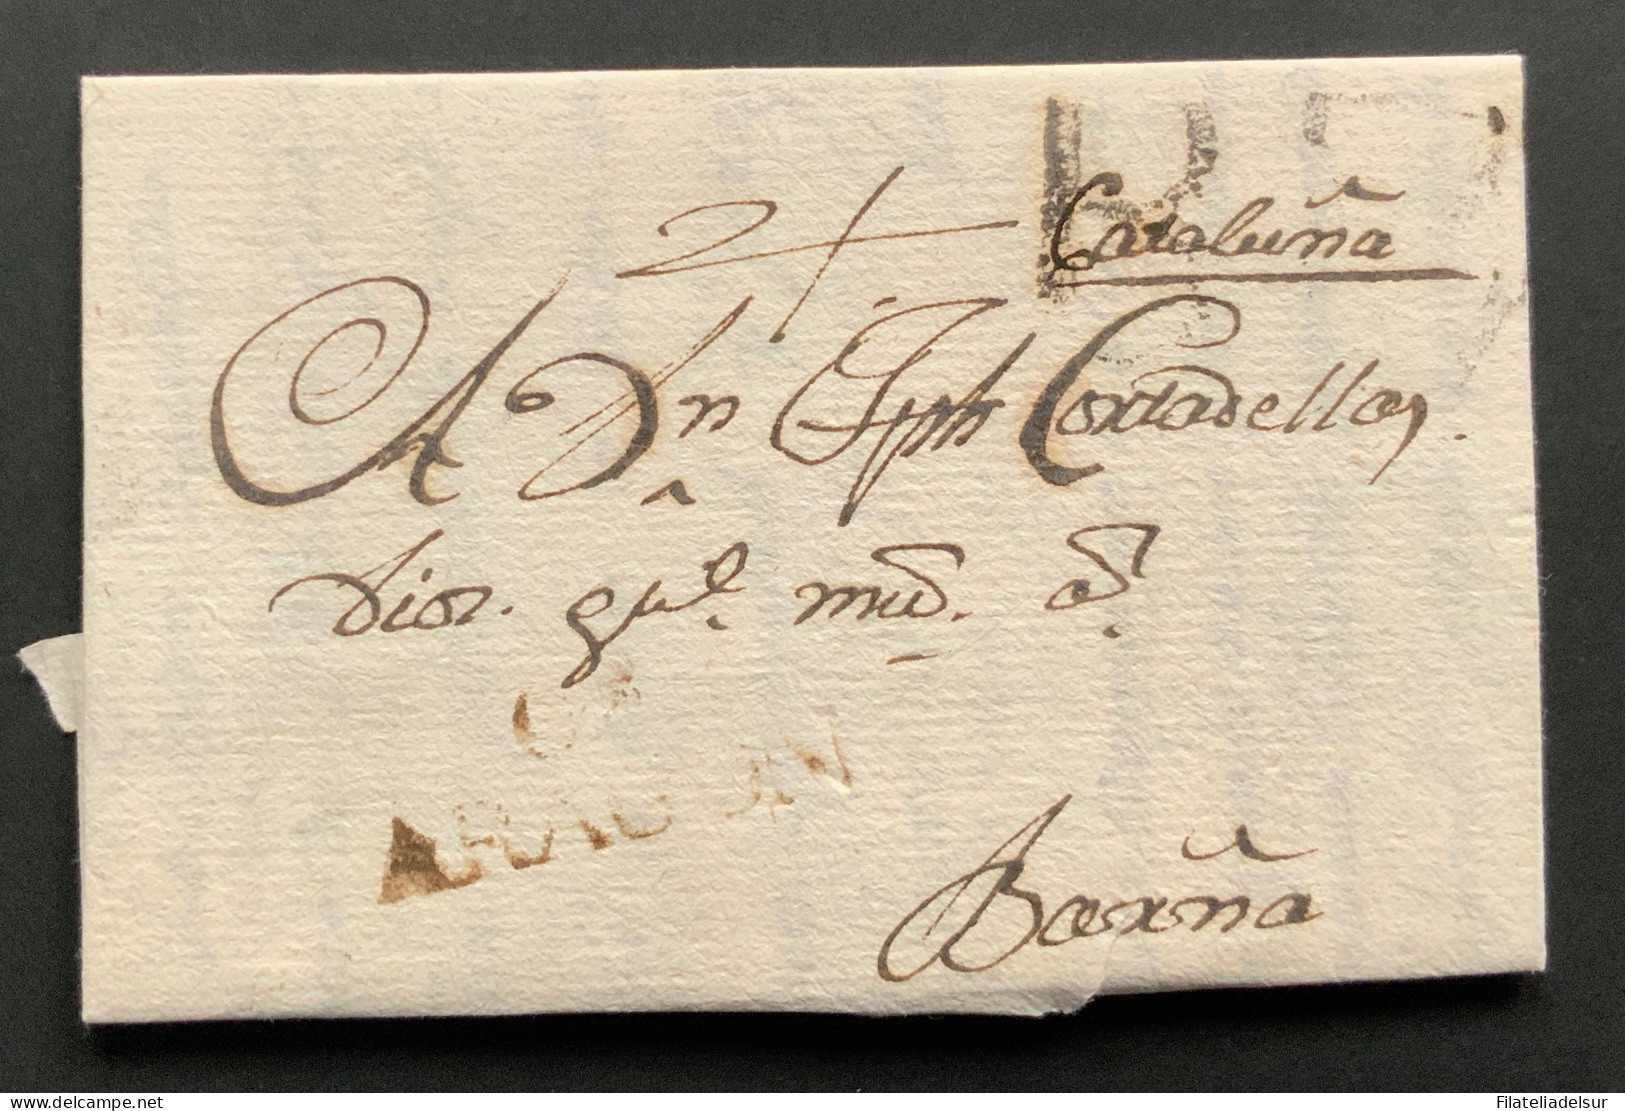 Cataluña
A Dn Jph Cortadellas.
Dios. gue. ms. as.
ARAGON
Barña
delcampe.net
Filateliadelsur